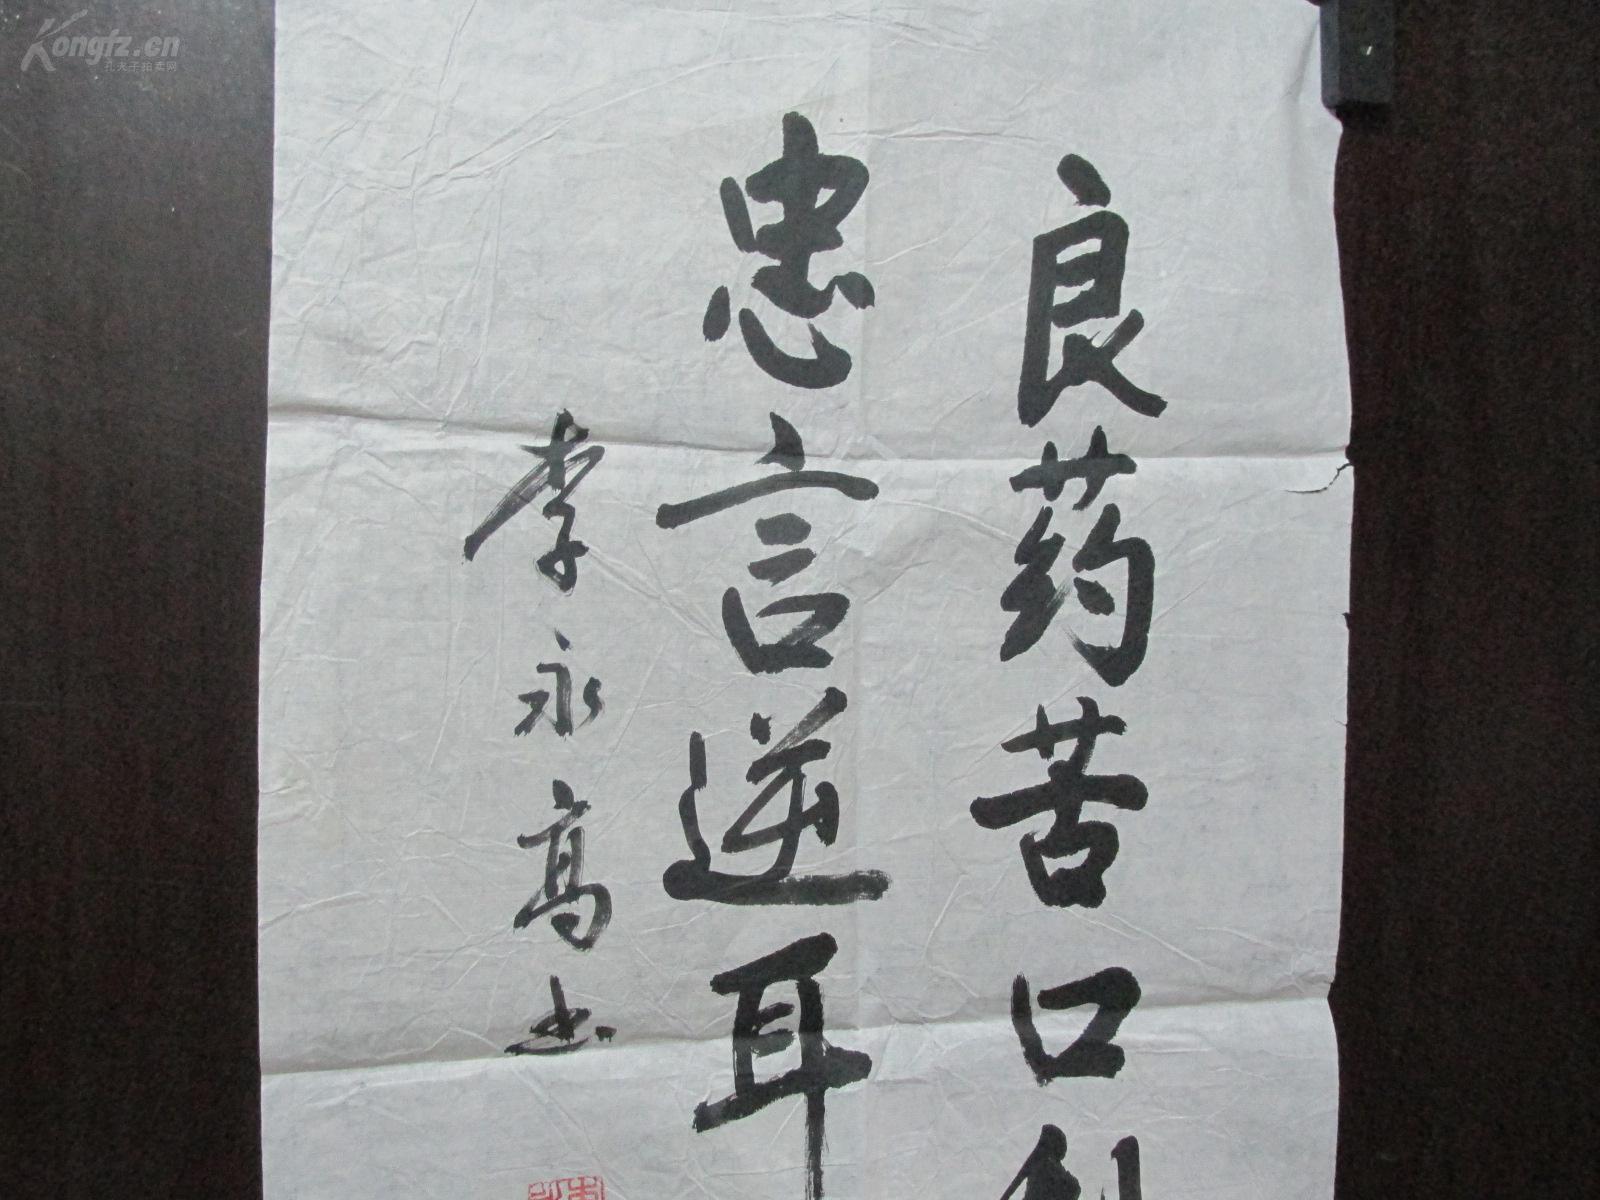 良药苦口利
忠言逆耳
李永高书
Kongfz.cn
孔夫子拍卖网